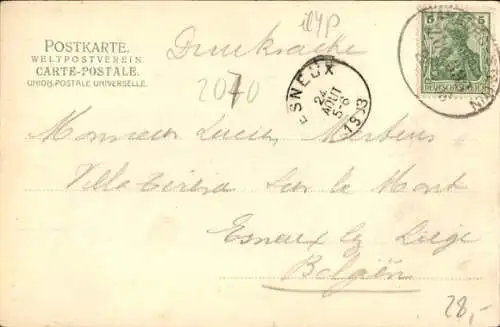 POSTKARTE.
WELTPOSTVEREIN.
CARTE-POSTALE.
UNION POSTALE UNIVERSELLE.
Drucksache
2070
ESNEUX
24
AOUT
5-6
5
DEUTSCHES REICH
Monsieur Lucien Mertens
Villa Sur le Mont
Esneux lez Liége
Belgien
28,-